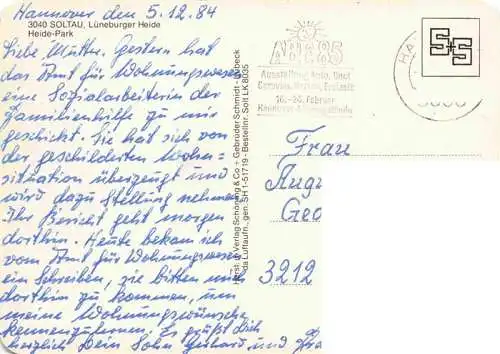 Hannover den 5.12.84
3040 SOLTAU, Lüneburger Heide
Heide-Park
Liebe Mutter. Gestern hat
das Amt für Wohnungswesen
eine Sozialarbeiterin der
Familienhilfe zu mir
geschickt. Sie hat sich von
der geschilderten Wohn-
situation überzeugt und
wird dazu Stellung nehmen
Ihr Bericht geht morgen
dorthin. Heute bekam ich
vom Amt für Wohnungswesen
ein Schreiben, sie bitten mich
dorthin zu kommen, um
meine Wohnungswünsche
kennenzulernen. Es grüßt Dich
herzlich Dein Sohn Gerhard und
Verlag Schöning & Co + Gebrüder Schmidt · Lübeck
Luftaufn., gen. SH 1-51719 · Bestellnr. Solt LK 8035
ABC 85
Ausstellung Auto, Boot
Caravan, Reisen, Freizeit
16.-24. Februar
Hannover
S+S
Frau
Aug
Geo
3212